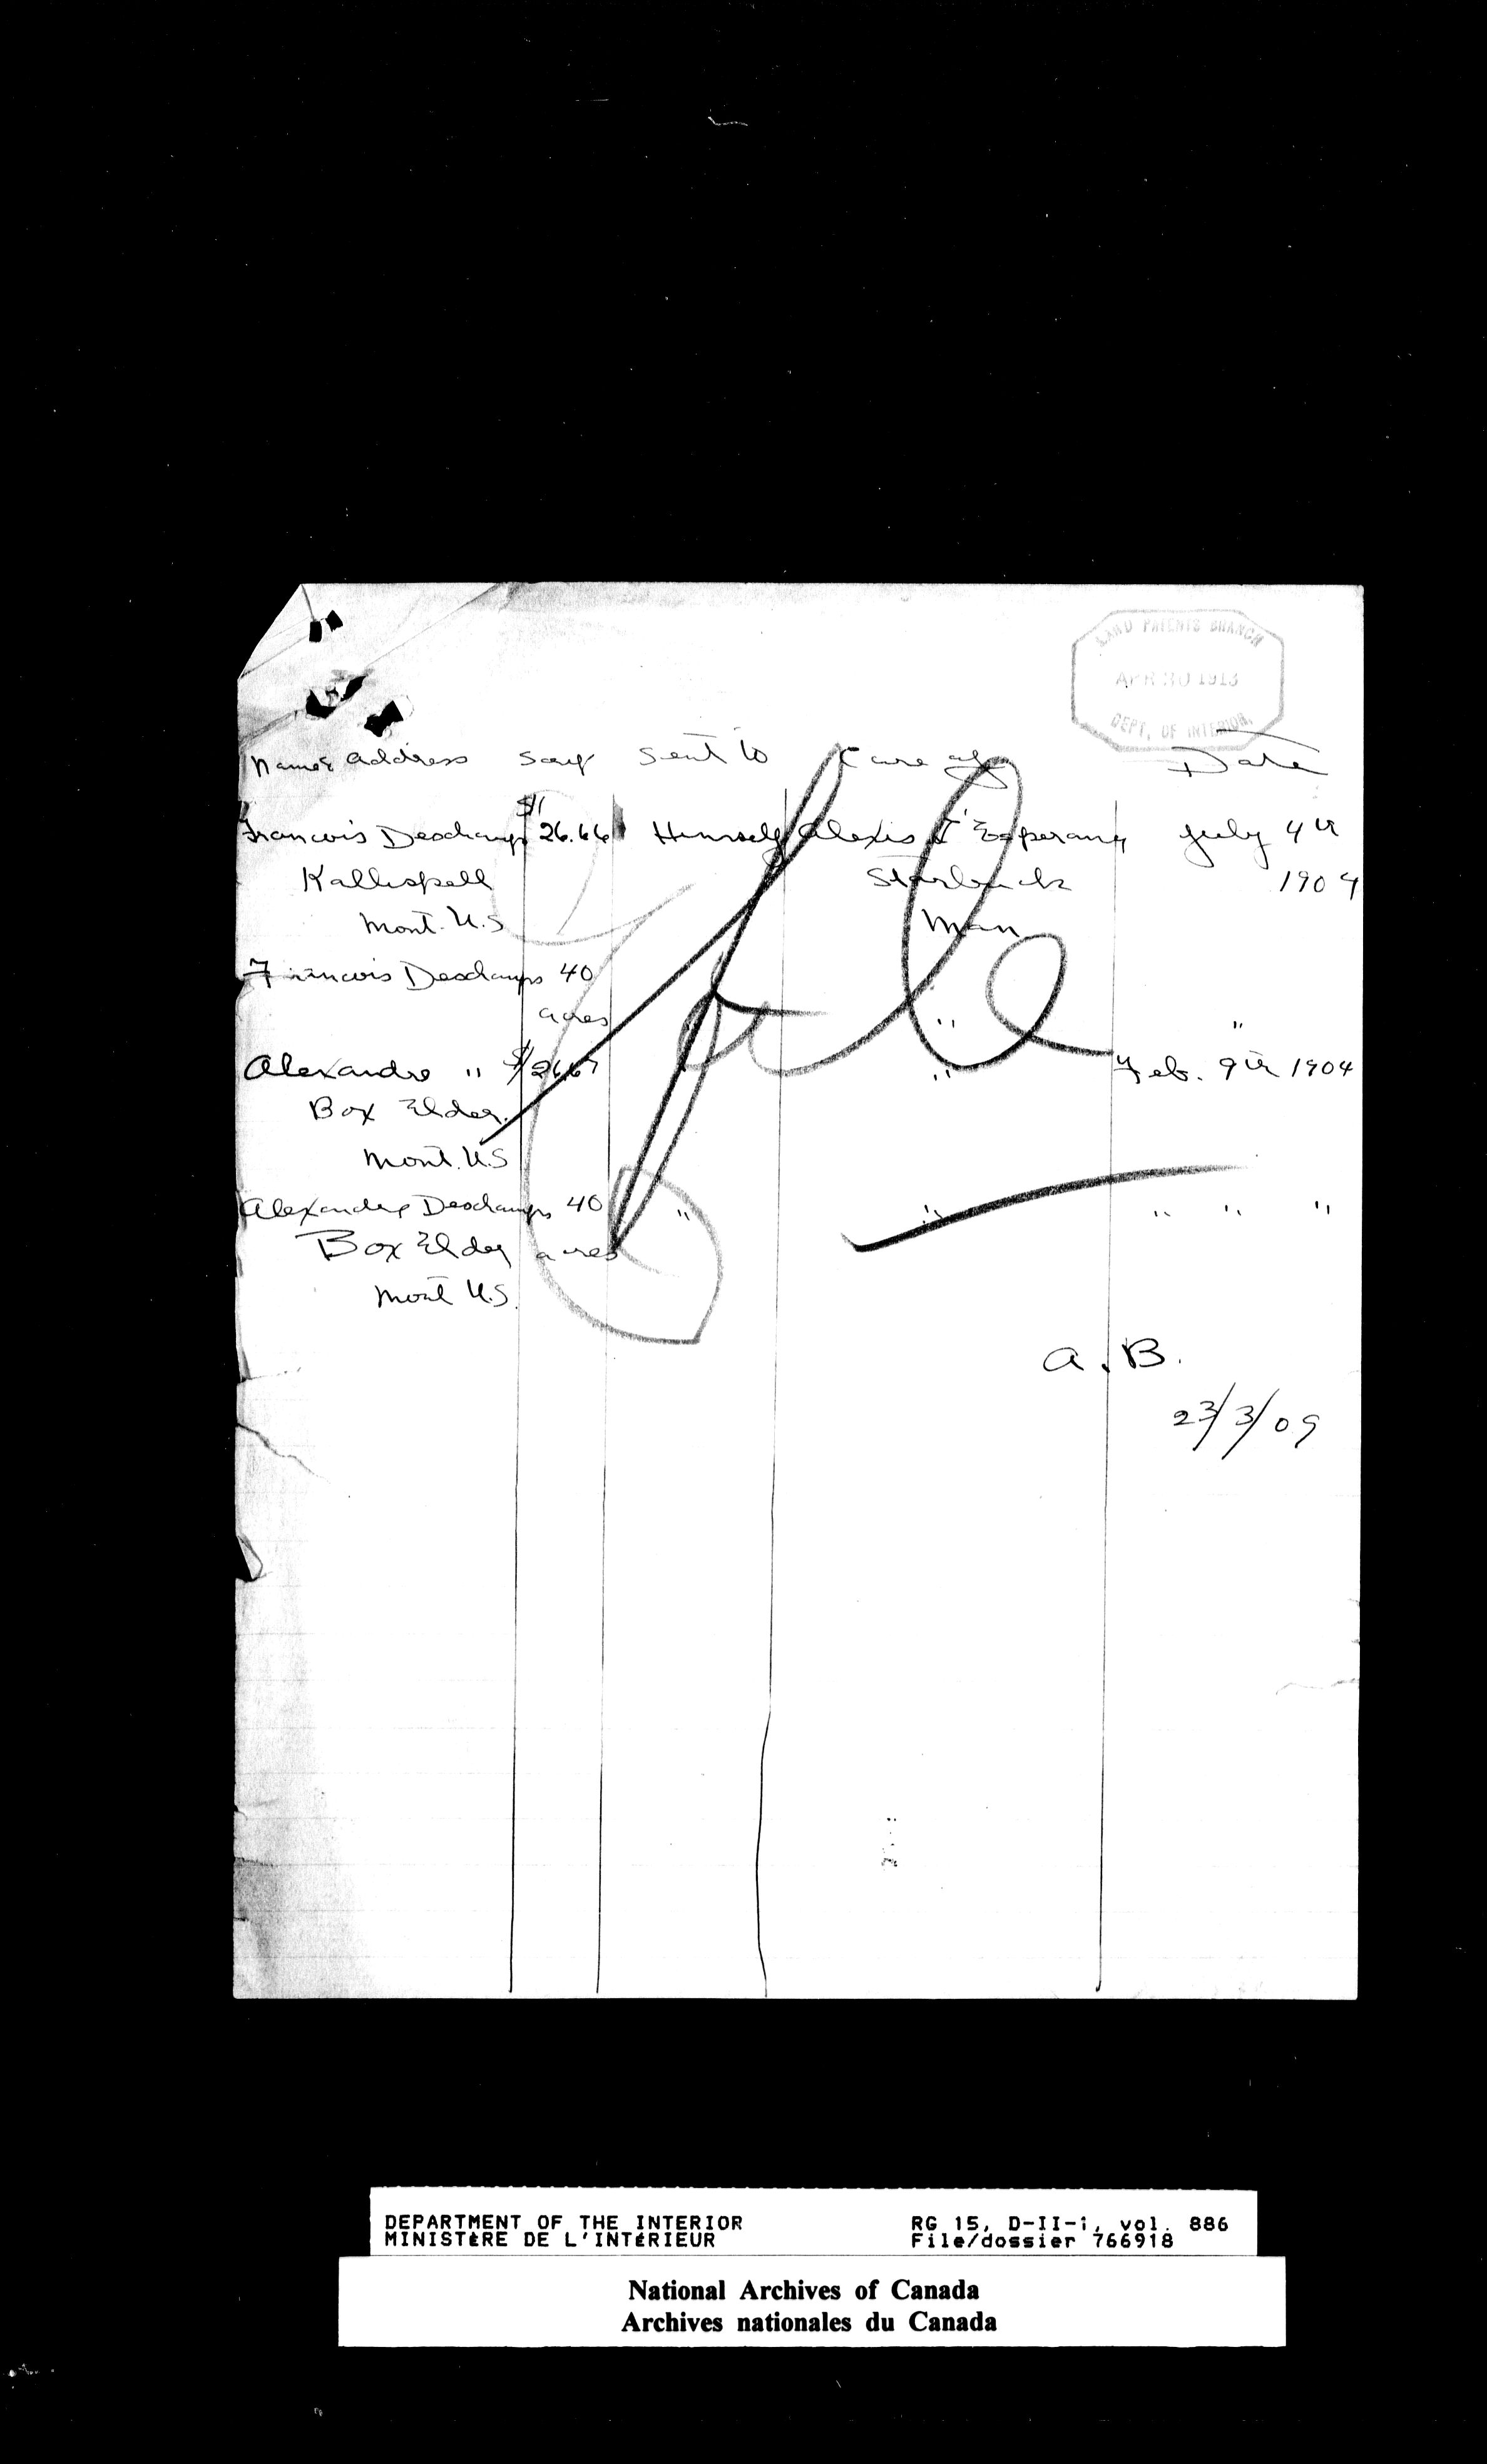 LAND PATENTS BRANCH
APR 30 1913
DEPT. OF INTERIOR.
Name & address Scrip Sent to Care of Date
Francois Deschamps $26.66 Himself Alexis L'Esperance July 4th
Kallispell Starbuck 1904
Mont. U.S Man
Francois Deschamps 40
acres " " "
Alexandre " $26.67 " Feb. 9th 1904
Box Elder.
Mont. U.S
Alexandre Deschamps 40 " " " " "
Box Elder acres
Mont U.S.
file
A.B.
23/3/09
DEPARTMENT OF THE INTERIOR RG 15, D-II-1, vol. 886
MINISTÈRE DE L'INTÉRIEUR File/dossier 766918
National Archives of Canada
Archives nationales du Canada